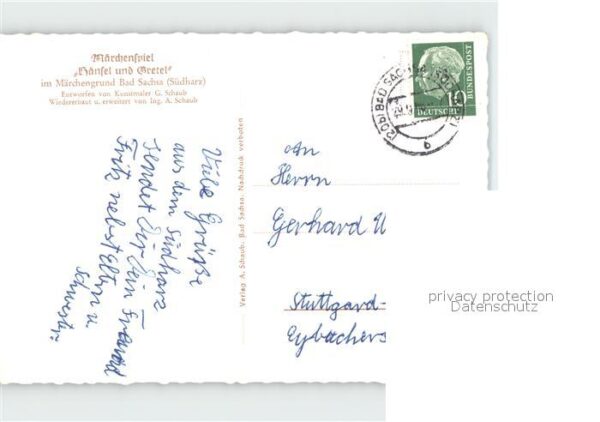 Märchenspiel
„Hänsel und Gretel"
im Märchengrund Bad Sachsa (Südharz)
Entworfen von Kunstmaler G. Schaub
Wiedererbaut u. erweitert von Ing. A. Schaub
Viele Grüße
aus dem Südharz
sendet Dir Dein Freund
Fritz nebst Eltern u.
Schwester
Verlag A. Schaub, Bad Sachsa, Nachdruck verboten
An
Herrn
Gerhard U
Stuttgard-
Eybachers
10
DEUTSCHE
BUNDESPOST
(20b) BAD SACHSA
b
privacy protection
Datenschutz